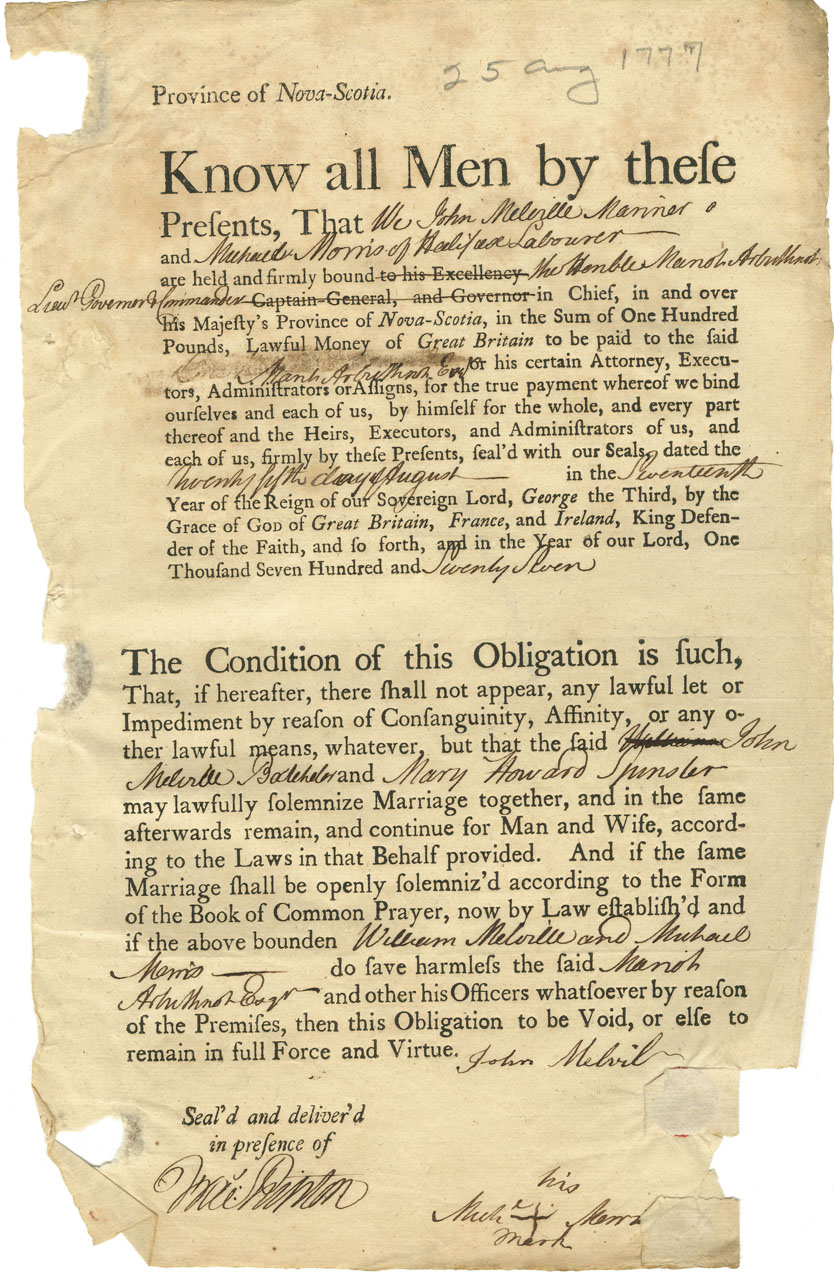 25 Aug 1777
Province of Nova-Scotia.
Know all Men by theſe
Preſents, That We John Melville Mariner
and Michael Morris of Halifax Labourer
are held and firmly bound to his Excellency The Honble Mariot Arbuthnot
Lieut Governor & Commander Captain-General, and Governor in Chief, in and over
his Majeſty's Province of Nova-Scotia, in the Sum of One Hundred
Pounds, Lawful Money of Great Britain to be paid to the ſaid
Mariot Arbuthnot Esqr or his certain Attorney, Execu-
tors, Adminiſtrators or Aſſigns, for the true payment whereof we bind
ourſelves and each of us, by himſelf for the whole, and every part
thereof and the Heirs, Executors, and Adminiſtrators of us, and
each of us, firmly by theſe Preſents, ſeal'd with our Seals, dated the
twenty fifth day of August in the Seventeenth
Year of the Reign of our Sovereign Lord, George the Third, by the
Grace of God of Great Britain, France, and Ireland, King Defen-
der of the Faith, and ſo forth, and in the Year of our Lord, One
Thouſand Seven Hundred and Seventy Seven
The Condition of this Obligation is ſuch,
That, if hereafter, there ſhall not appear, any lawful let or
Impediment by reaſon of Conſanguinity, Affinity, or any o-
ther lawful means, whatever, but that the ſaid William John
Melville Batchelor and Mary Howard Spinster
may lawfully ſolemnize Marriage together, and in the ſame
afterwards remain, and continue for Man and Wife, accord-
ing to the Laws in that Behalf provided. And if the ſame
Marriage ſhall be openly ſolemniz'd according to the Form
of the Book of Common Prayer, now by Law eſtabliſh'd and
if the above bounden William Melville and Michael
Morris do ſave harmleſs the ſaid Mariot
Arbuthnot Esqr and other his Officers whatſoever by reaſon
of the Premiſes, then this Obligation to be Void, or elſe to
remain in full Force and Virtue. John Melvil
Seal'd and deliver'd
in preſence of
his
Mich
mark